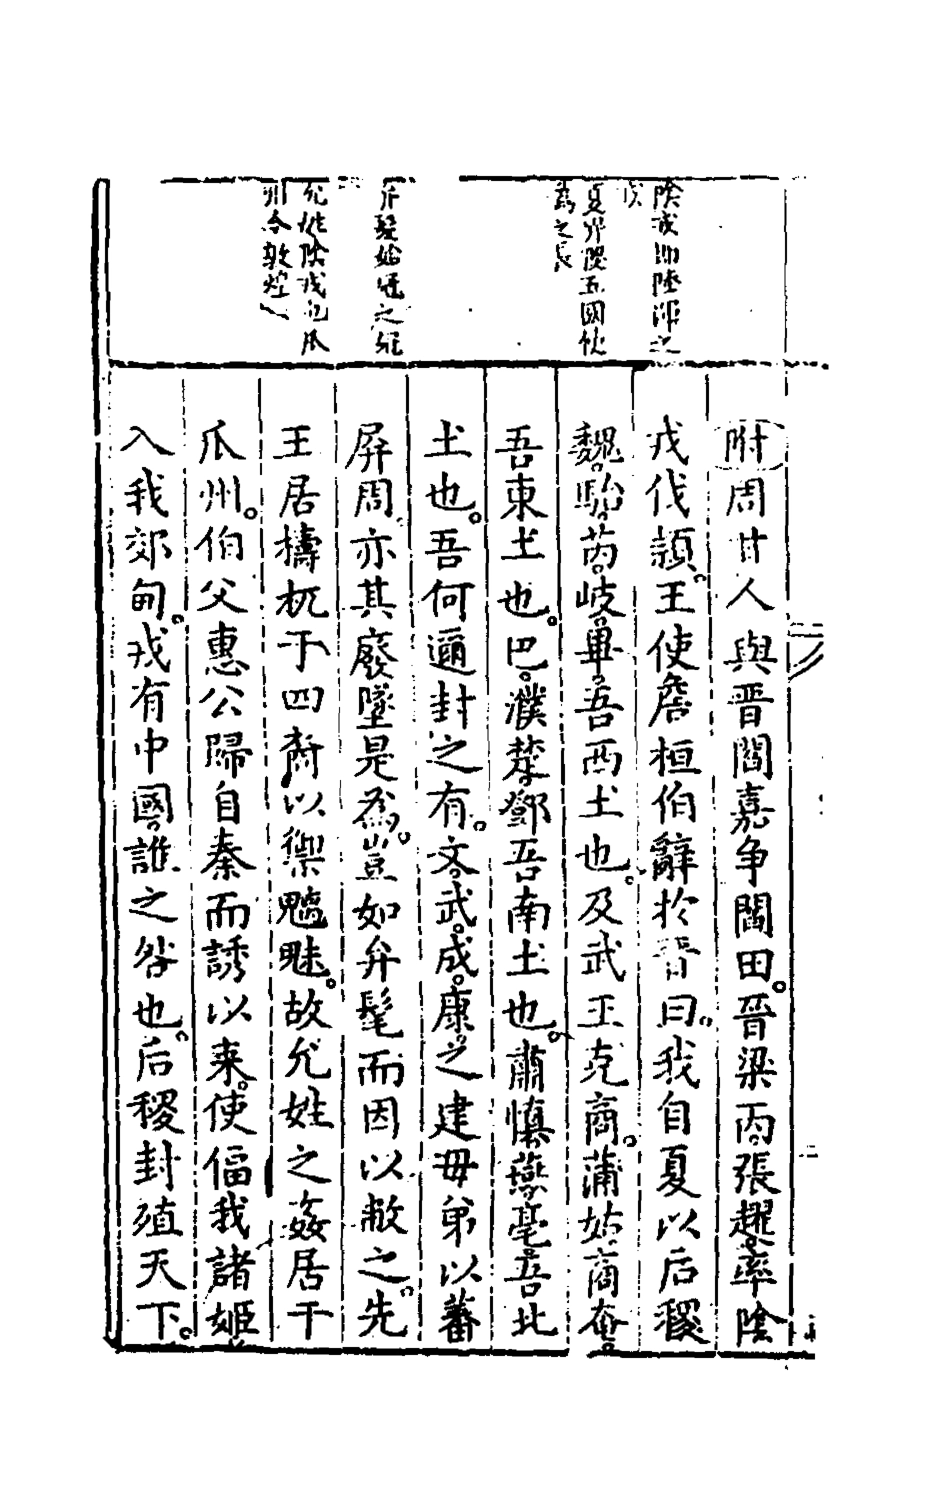 陰戎即陸渾之
戎
夏世陧五國
為之長
弁髦始冠之
允姓陰戎
州今敦煌
附周甘人與晋閻嘉争閻田。晋梁丙、張趯率陰
戎伐潁。王使詹桓伯辭於晋曰。我自夏以后稷
魏、駘、芮、岐、畢吾西土也。及武王克商。蒲姑、商奄。
吾東土也。巴、濮、楚、鄧吾南土也。肅慎、燕、亳、吾北
土也。吾何邇封之有。文、武、成、康、之建毋弟以蕃
屏周。亦其廢墜是為。豈如弁髦而因以敝之。先
王居檮杌于四裔以禦魑魅。故允姓之姦居于
瓜州。伯父惠公歸自秦而誘以来。使偪我諸姬
入我郊甸。戎有中國。誰之咎也。后稷封殖天下。